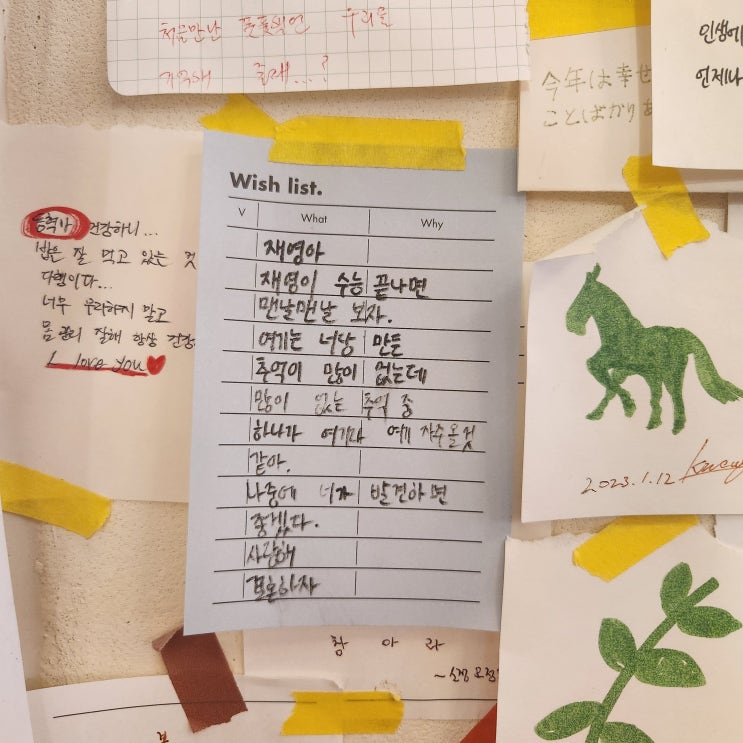 처음만난 우리를
기억해 줄래...?
今年は幸せ
ことばかり
인생에
언제나
건강하니...
밥은 잘 먹고 있는 것
다행이다...
너무 무리하지 말고
몸 관리 잘해 항상 건강
I love you
Wish list.
V What Why
재영아
재영이 수능 끝나면
맨날맨날 보자.
여기는 너랑 만든
추억이 많이 없는데
많이 없는 추억 중
하나가 여기라 여기 자주 올 것
같아.
나중에 너가 발견하면
좋겠다.
사랑해
결혼하자
2023.1.12
참 아 라